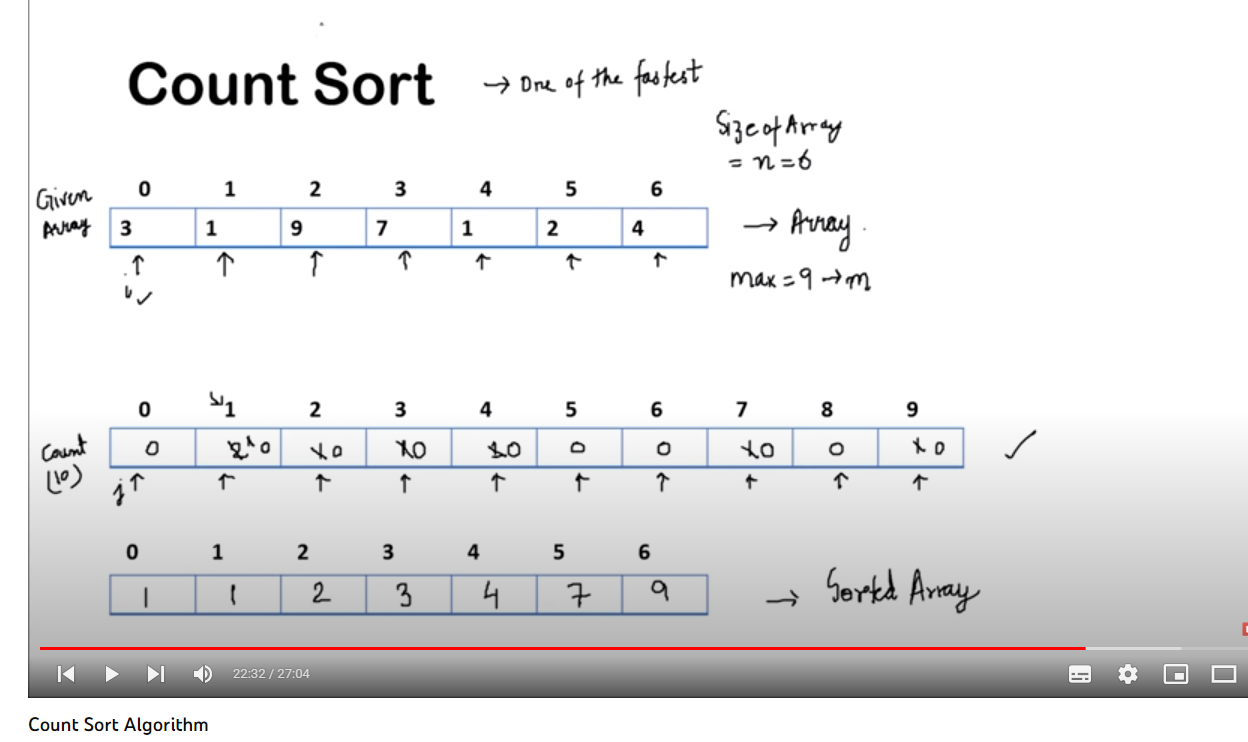 Count Sort → One of the fastest
Size of Array
= n = 6
Given
Array
0 1 2 3 4 5 6
3 1 9 7 1 2 4
→ Array
max = 9 → m
0 1 2 3 4 5 6 7 8 9
Count
(10)
0 2 1 0 1 0 1 0 1 0 0 0 1 0 0 1 0
j
0 1 2 3 4 5 6
1 1 2 3 4 7 9
→ Sorted Array
22:32 / 27:04
Count Sort Algorithm